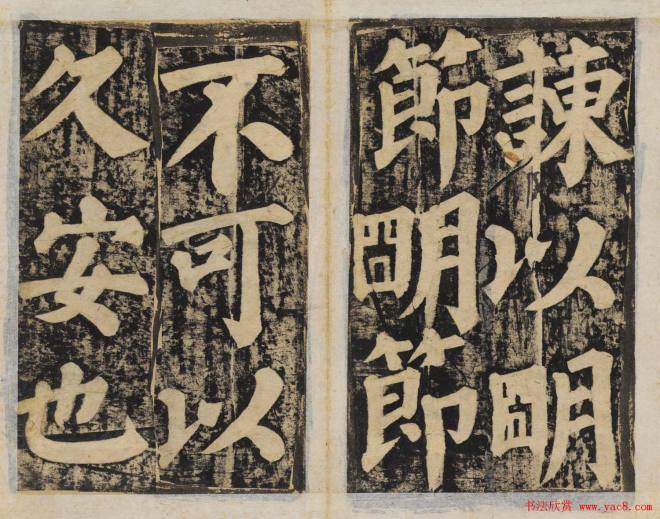 諫以明
節明節
不可以
久安也
书法欣赏
www.yac8.com